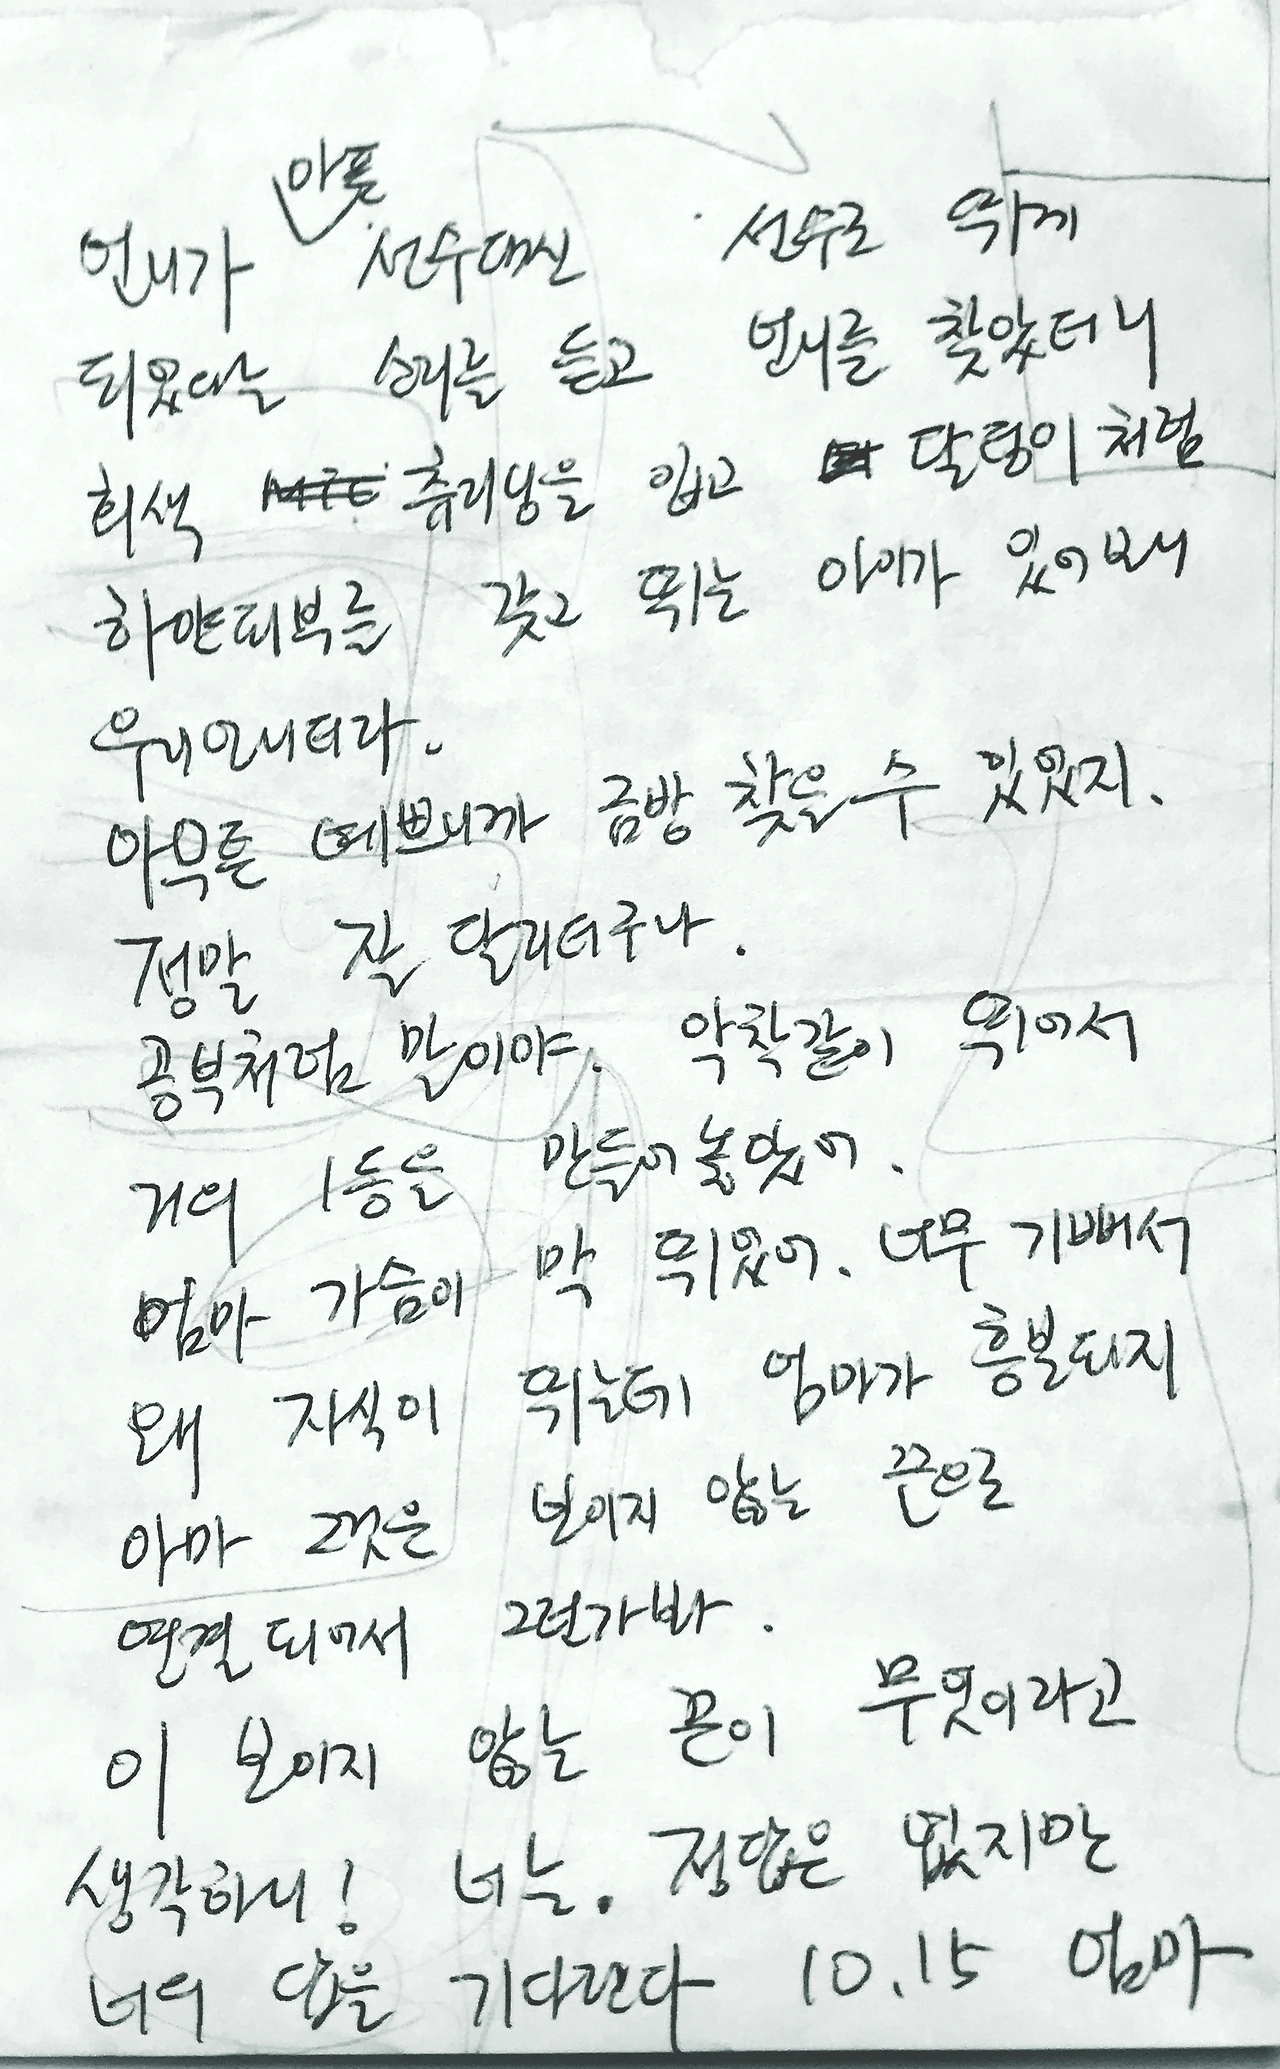 언니가 아픈 선수대신 선수로 뛰게
되었다는 소리를 듣고 언니를 찾았더니
회색 츄리닝을 입고 달렁이처럼
하얀피부를 갖고 뛰는 아이가 있어보니
우리언니더라.
아무튼 예쁘니까 금방 찾을 수 있었지.
정말 잘 달리더구나.
공부처럼 말이야. 악착같이 뛰어서
거의 1등을 만들어 놓았어.
엄마 가슴이 막 뛰었어. 너무 기뻐서
왜 자식이 뛰는데 엄마가 흥분되지
아마 그것은 보이지 않는 끈으로
연결되어서 그런가봐.
이 보이지 않는 끈이 무엇이라고
생각하니! 너는. 정답은 없지만
너의 답을 기다린다 10.15 엄마